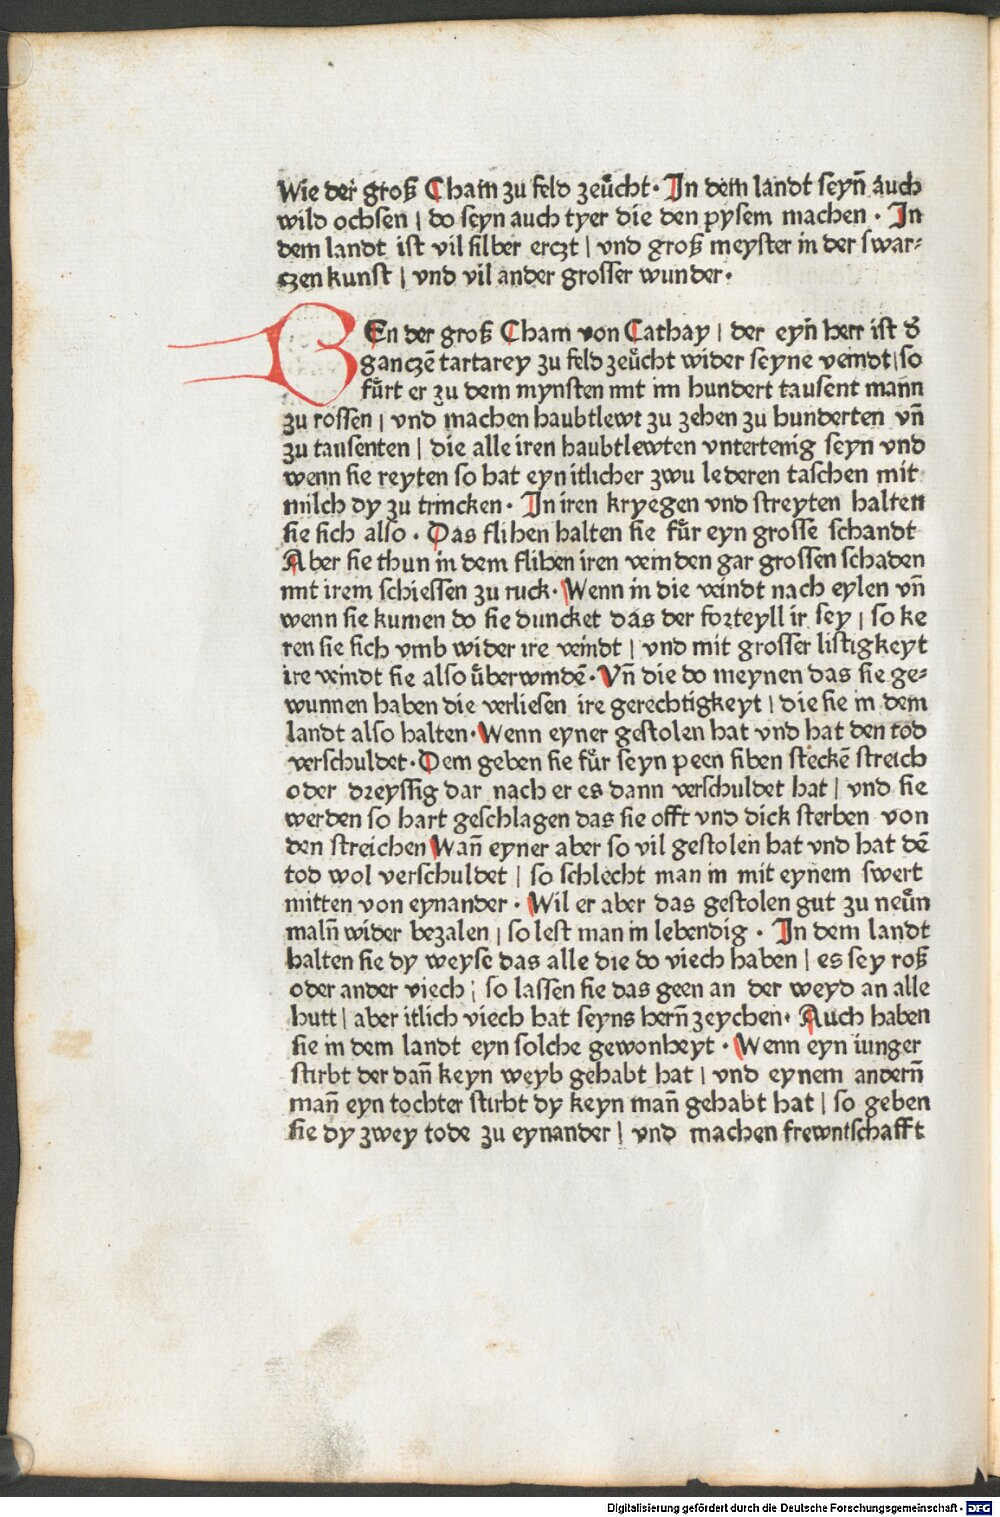 Wie der groß Cham zu feld zeücht· In dem landt seyn̄ auch
wild ochsen | do seyn auch tyer die den pysem machen · In
dem landt ist vil silber erczt | vnd groß meyster in der swar⸗
czen kunst | vnd vil ander grosser wunder·
WEn der groß Cham von Cathay | der eyn̄ herr ist d̄
ganczē tartarey zu feld zeücht wider seyne veindt | so
fůrt er zu dem mynsten mit im hundert tausent mann
zu rossen | vnd machen haubtlewt zu zehen zu hunderten vn̄
zu tausenten | die alle iren haubtlewten vntertenig seyn vnd
wenn sie reyten so hat eyn itlicher zwu lederen taschen mit
milch dy zu trincken · In iren kryegen vnd streyten halten
sie sich also · Das flihen halten sie für eyn grosse schandt
Aber sie thun in dem flihen iren veinden gar grossen schaden
mit irem schiessen zu ruck· Wenn in die veindt nach eylen vn̄
wenn sie kumen do sie duncket das der forteyll ir sey | so ke
ren sie sich vmb wider ire veindt | vnd mit grosser listigkeyt
ire veindt sie also überwindē· Vn̄ die do meynen das sie ge⸗
wunnen haben die verliesen ire gerechtigkeyt | die sie in dem
landt also halten· Wenn eyner gestolen hat vnd hat den tod
verschuldet· Dem geben sie für seyn peen siben steckē streich
oder dreyssig dar nach er es dann verschuldet hat | vnd sie
werden so hart geschlagen das sie offt vnd dick sterben von
den streichen Wan̄ eyner aber so vil gestolen hat vnd hat dē
tod wol verschuldet | so schlecht man in mit eynem swert
mitten von eynander · Wil er aber das gestolen gut zu neün
maln̄ wider bezalen | so lest man in lebendig · In dem landt
halten sie dy weyse das alle die do viech haben | es sey roß
oder ander viech | so lassen sie das geen an der weyd an alle
hutt | aber itlich viech hat seyns hern̄ zeychen· Auch haben
sie in dem landt eyn solche gewonheyt · Wenn eyn iunger
stirbt der dan̄ keyn weyb gehabt hat | vnd eynem andern̄
man̄ eyn tochter stirbt dy keyn man̄ gehabt hat | so geben
sie dy zwey tode zu eynander | vnd machen frewntschafft
Digitalisierung gefördert durch die Deutsche Forschungsgemeinschaft - DFG